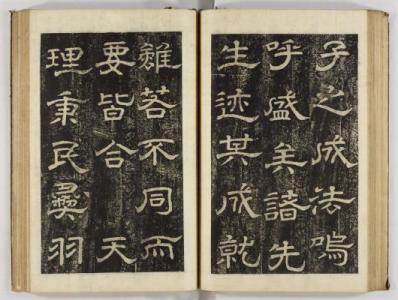 子之成法嗚
呼盛矣諸先
生迹其成就
雖若不同而
要皆合天
理秉民彝羽